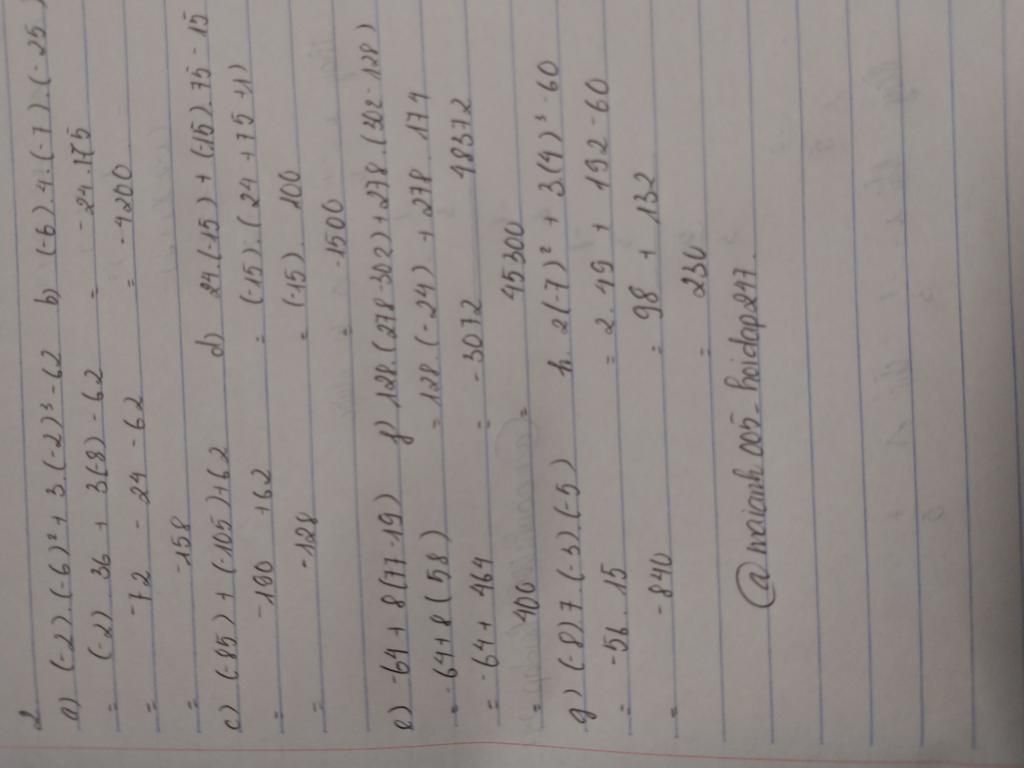 2
a) (-2).(-6)² + 3.(-2)³ - 62 b) (-6).4.(-7).(-25)
= (-2) 36 + 3(-8) - 62 = -24.175
= -72 - 24 - 62 = -4200
= -158
c) (-85) + (-105) + 62 d) 24.(-15) + (-15).75 - 15
= -190 + 62 = (-15).(24 + 75 + 1)
= -128 = (-15). 100
= -1500
e) -64 + 8(77-19) f) 128.(278-302) + 278.(302-128)
= -64 + 8(58) = 128.(-24) + 278.174
= -64 + 464 = -3072 48372
= 400 = 45300
g) (-8)7.(-3).(-5) h. 2(-7)² + 3(4)³ - 60
= -56. 15 = 2.49 + 192 - 60
= -840 = 98 + 132
= 230
@maianh005_hoidap247.